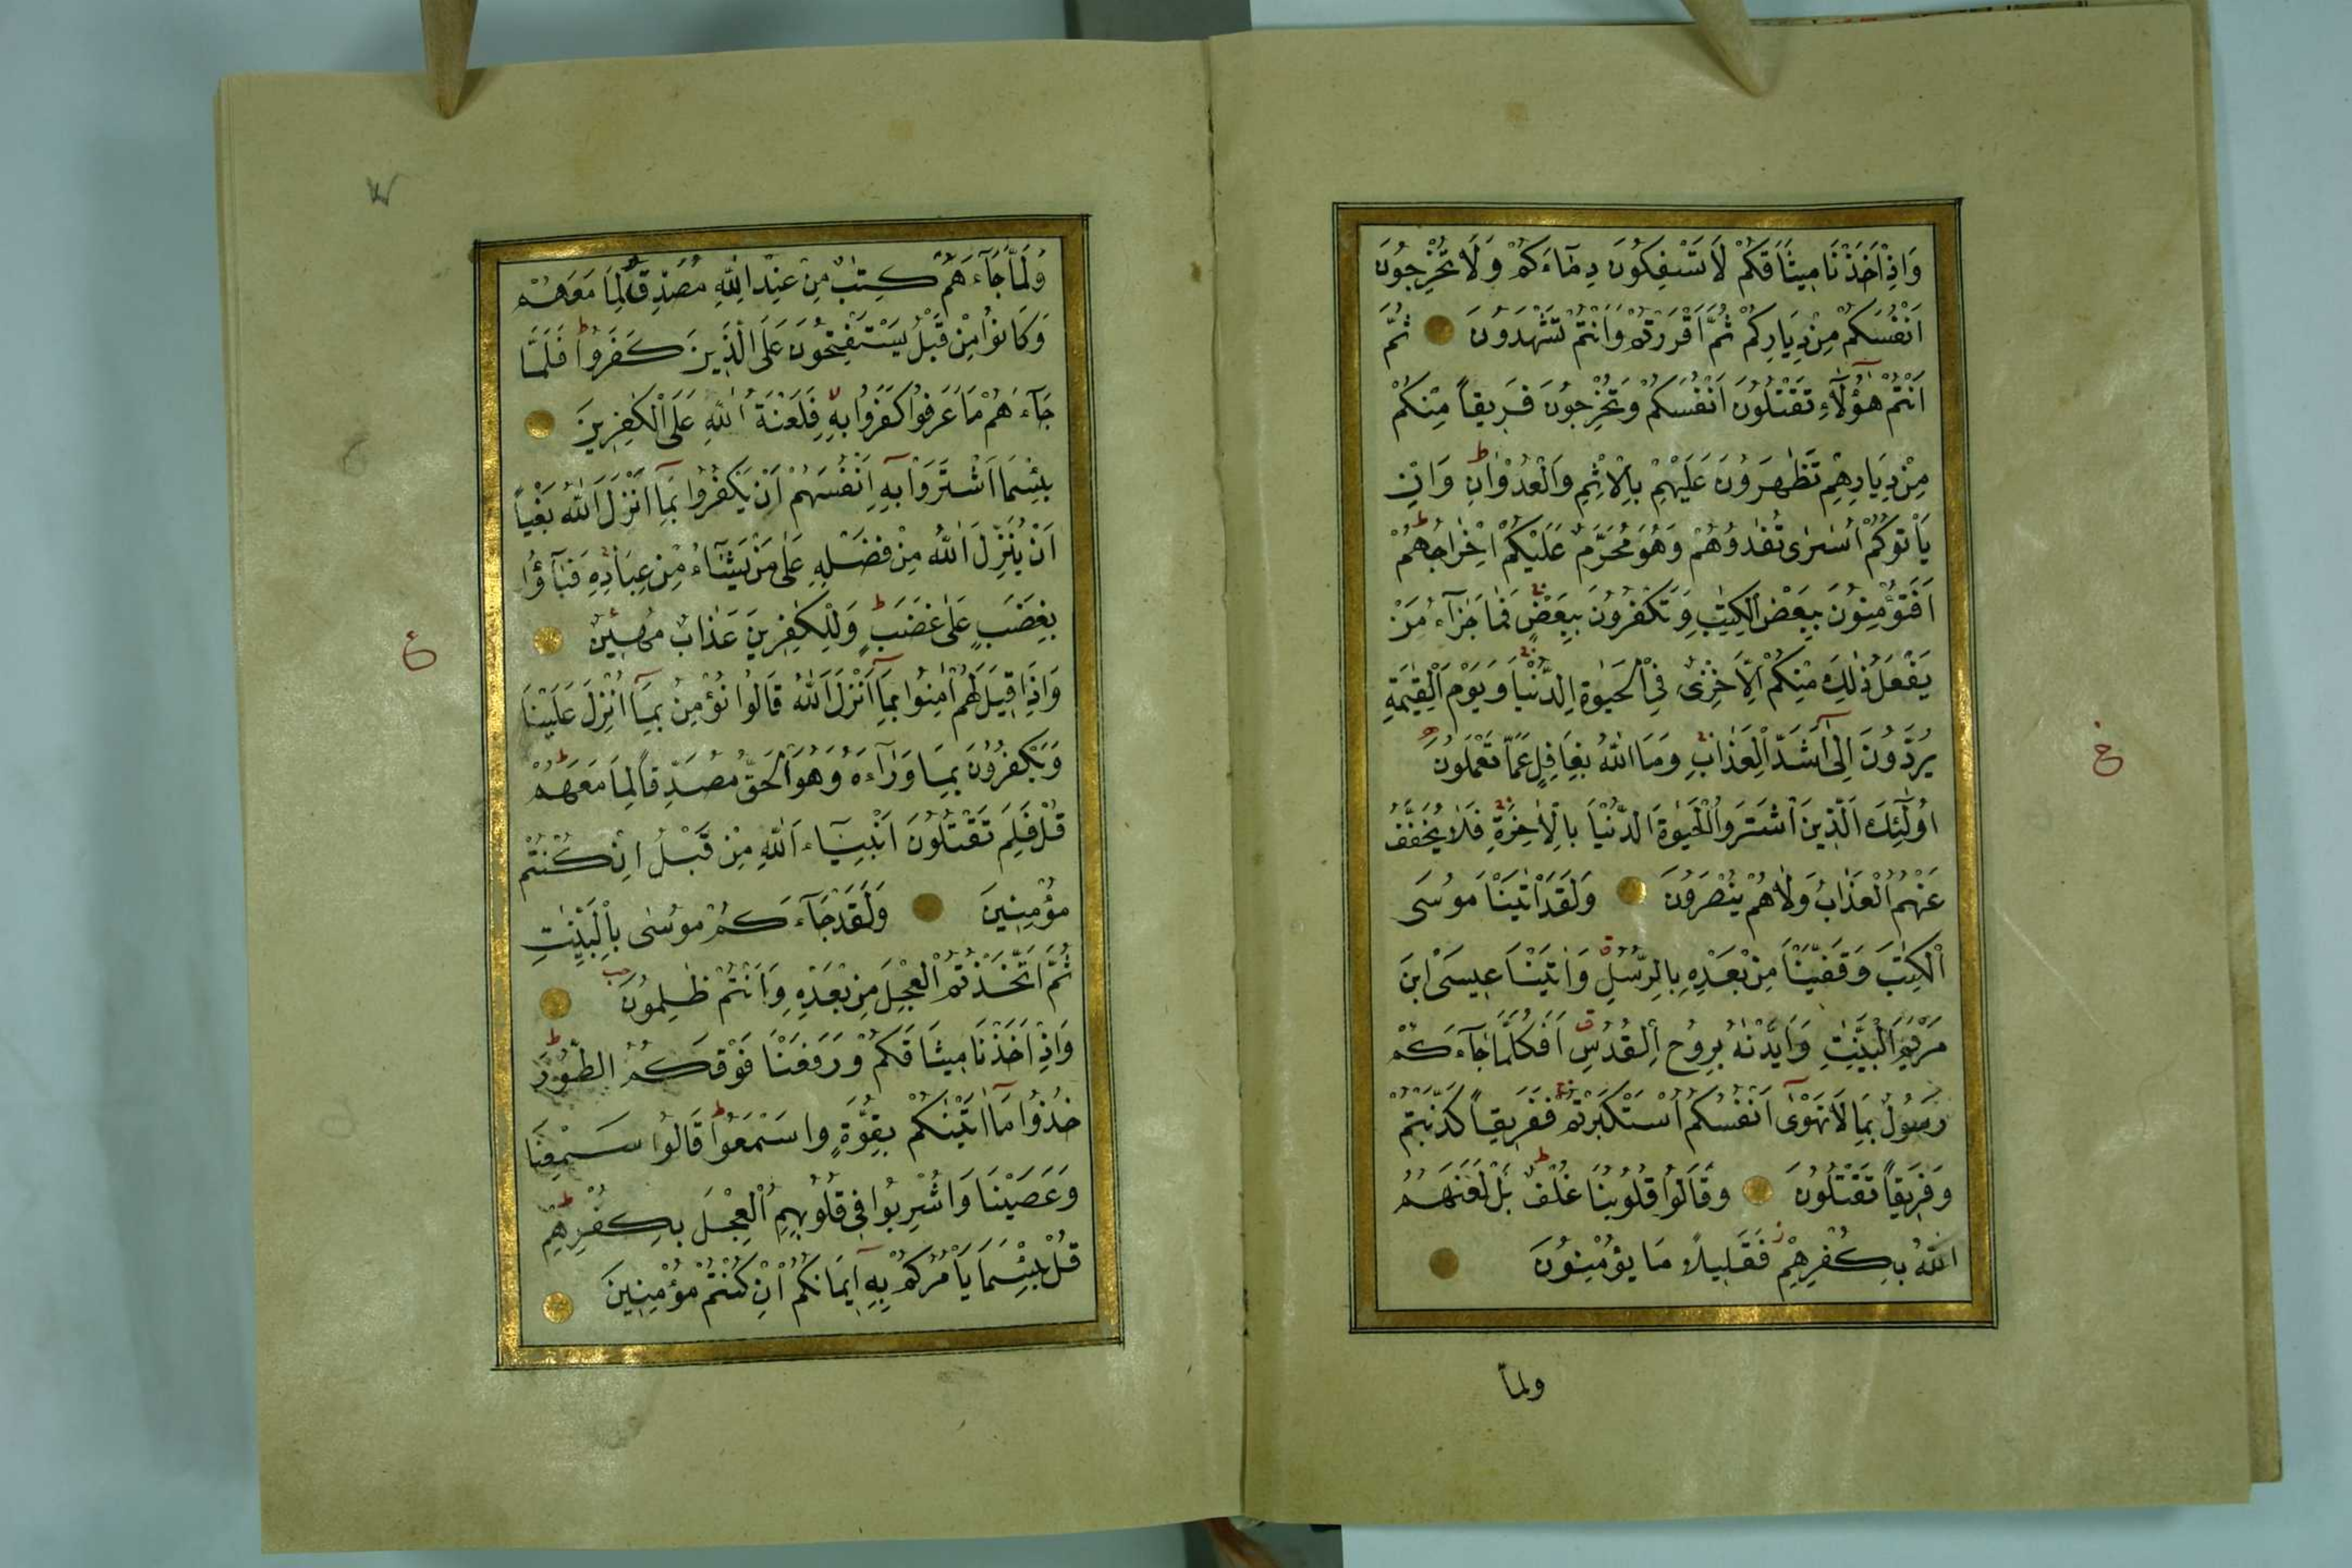 وَاِذْ اَخَذْنَا مِيثَاقَكُمْ لَا تَسْفِكُونَ دِمَٓاءَكُمْ وَلَا تُخْرِجُونَ
اَنْفُسَكُمْ مِنْ دِيَارِكُمْ ثُمَّ اَقْرَرْتُمْ وَاَنْتُمْ تَشْهَدُونَ ثُمَّ
اَنْتُمْ هٰٓؤُلَٓاءِ تَقْتُلُونَ اَنْفُسَكُمْ وَتُخْرِجُونَ فَرِيقاً مِنْكُمْ
مِنْ دِيَارِهِمْ تَظَاهَرُونَ عَلَيْهِمْ بِالْاِثْمِ وَالْعُدْوَانِ ط وَاِنْ
يَأْتُوكُمْ اُسٰرٰى تُفٰدُوهُمْ وَهُوَ مُحَرَّمٌ عَلَيْكُمْ اِخْرَاجُهُمْ ط
اَفَتُؤْمِنُونَ بِبَعْضِ الْكِتٰبِ وَتَكْفُرُونَ بِبَعْضٍ فَمَا جَزَٓاءُ مَنْ
يَفْعَلُ ذٰلِكَ مِنْكُمْ اِلَّا خِزْىٌ فِى الْحَيٰوةِ الدُّنْيَا وَيَوْمَ الْقِيٰمَةِ
يُرَدُّونَ اِلٰٓى اَشَدِّ الْعَذَابِ وَمَا اللّٰهُ بِغَافِلٍ عَمَّا تَعْمَلُونَ
اُولٰٓئِكَ الَّذِينَ اشْتَرَوُا الْحَيٰوةَ الدُّنْيَا بِالْاٰخِرَةِ فَلَا يُخَفَّفُ
عَنْهُمُ الْعَذَابُ وَلَا هُمْ يُنْصَرُونَ وَلَقَدْ اٰتَيْنَا مُوسَى
الْكِتٰبَ وَقَفَّيْنَا مِنْ بَعْدِهِ بِالرُّسُلِ وَاٰتَيْنَا عِيسَى ابْنَ
مَرْيَمَ الْبَيِّنٰتِ وَاَيَّدْنٰهُ بِرُوحِ الْقُدُسِ اَفَكُلَّمَا جَٓاءَكُمْ
رَسُولٌ بِمَا لَا تَهْوٰٓى اَنْفُسُكُمُ اسْتَكْبَرْتُمْ فَفَرِيقاً كَذَّبْتُمْ
وَفَرِيقاً تَقْتُلُونَ وَقَالُوا قُلُوبُنَا غُلْفٌ ط بَلْ لَعَنَهُمُ
اللّٰهُ بِكُفْرِهِمْ فَقَلِيلاً مَا يُؤْمِنُونَ
ولما
وَلَمَّا جَٓاءَهُمْ كِتٰبٌ مِنْ عِنْدِ اللّٰهِ مُصَدِّقٌ لِمَا مَعَهُمْ
وَكَانُوا مِنْ قَبْلُ يَسْتَفْتِحُونَ عَلَى الَّذِينَ كَفَرُوا ط فَلَمَّا
جَٓاءَهُمْ مَا عَرَفُوا كَفَرُوا بِهِ فَلَعْنَةُ اللّٰهِ عَلَى الْكٰفِرِينَ
بِئْسَمَا اشْتَرَوْا بِهِٓ اَنْفُسَهُمْ اَنْ يَكْفُرُوا بِمَٓا اَنْزَلَ اللّٰهُ بَغْياً
اَنْ يُنَزِّلَ اللّٰهُ مِنْ فَضْلِهِ عَلٰى مَنْ يَشَٓاءُ مِنْ عِبَادِهِ فَبَٓاؤُا
بِغَضَبٍ عَلٰى غَضَبٍ ط وَلِلْكٰفِرِينَ عَذَابٌ مُهِينٌ
وَاِذَا قِيلَ لَهُمْ اٰمِنُوا بِمَٓا اَنْزَلَ اللّٰهُ قَالُوا نُؤْمِنُ بِمَٓا اُنْزِلَ عَلَيْنَا
وَيَكْفُرُونَ بِمَا وَرَٓاءَهُ وَهُوَ الْحَقُّ مُصَدِّقاً لِمَا مَعَهُمْ ط
قُلْ فَلِمَ تَقْتُلُونَ اَنْبِيَٓاءَ اللّٰهِ مِنْ قَبْلُ اِنْ كُنْتُمْ
مُؤْمِنِينَ وَلَقَدْ جَٓاءَكُمْ مُوسٰى بِالْبَيِّنٰتِ
ثُمَّ اتَّخَذْتُمُ الْعِجْلَ مِنْ بَعْدِهِ وَاَنْتُمْ ظٰلِمُونَ
وَاِذْ اَخَذْنَا مِيثَاقَكُمْ وَرَفَعْنَا فَوْقَكُمُ الطُّورَ ط
خُذُوا مَٓا اٰتَيْنٰكُمْ بِقُوَّةٍ وَاسْمَعُوا ط قَالُوا سَمِعْنَا
وَعَصَيْنَا وَاُشْرِبُوا فِى قُلُوبِهِمُ الْعِجْلَ بِكُفْرِهِمْ ط
قُلْ بِئْسَمَا يَأْمُرُكُمْ بِهِٓ اِيمَانُكُمْ اِنْ كُنْتُمْ مُؤْمِنِينَ